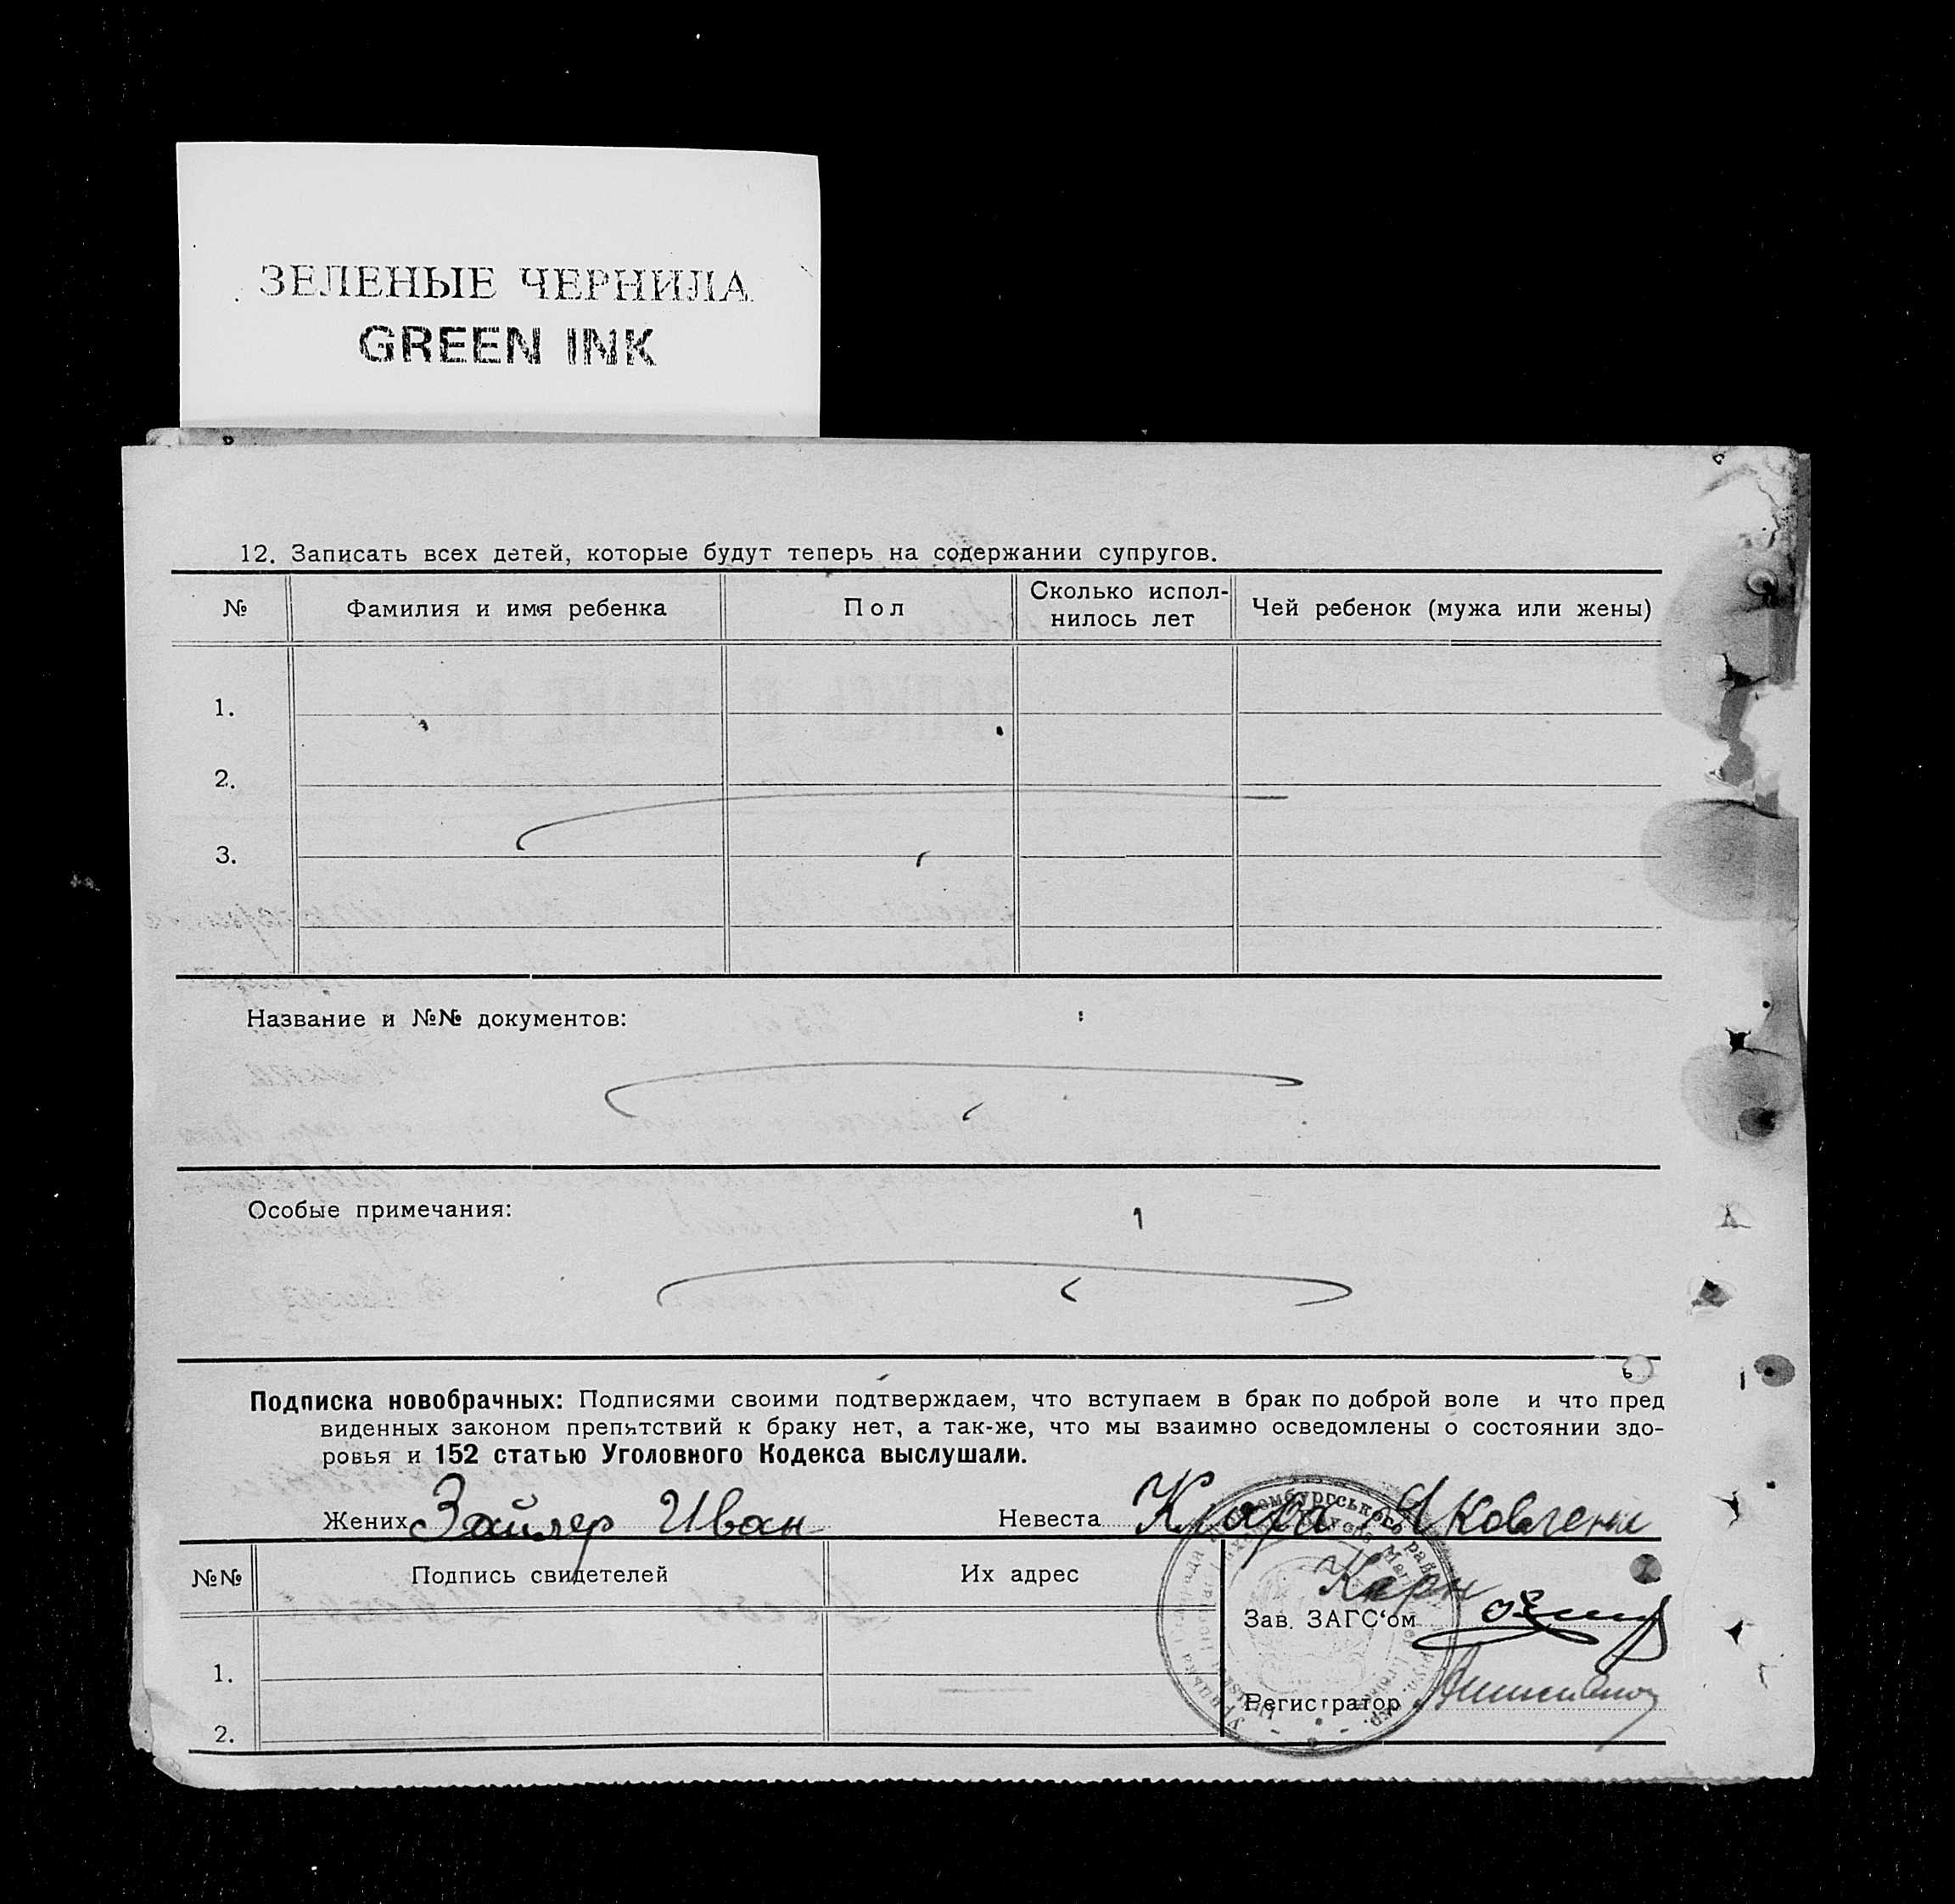 ЗЕЛЕНЫЕ ЧЕРНИЛА
GREEN INK
12. Записать всех детей, которые будут теперь на содержании супругов.
№ Фамилия и имя ребенка Пол Сколько испол- Чей ребенок (мужа или жены)
нилось лет
1.
2.
3.
Название и №№ документов:
Особые примечания:
Подписка новобрачных: Подписями своими подтверждаем, что вступаем в брак по доброй воле и что пред
виденных законом препятствий к браку нет, а так-же, что мы взаимно осведомлены о состоянии здо-
ровья и 152 статью Уголовного Кодекса выслушали.
Жених Зайлер Иван Невеста Клара
№№ Подпись свидетелей Их адрес
Зав. ЗАГС'ом
1.
Регистратор
2.